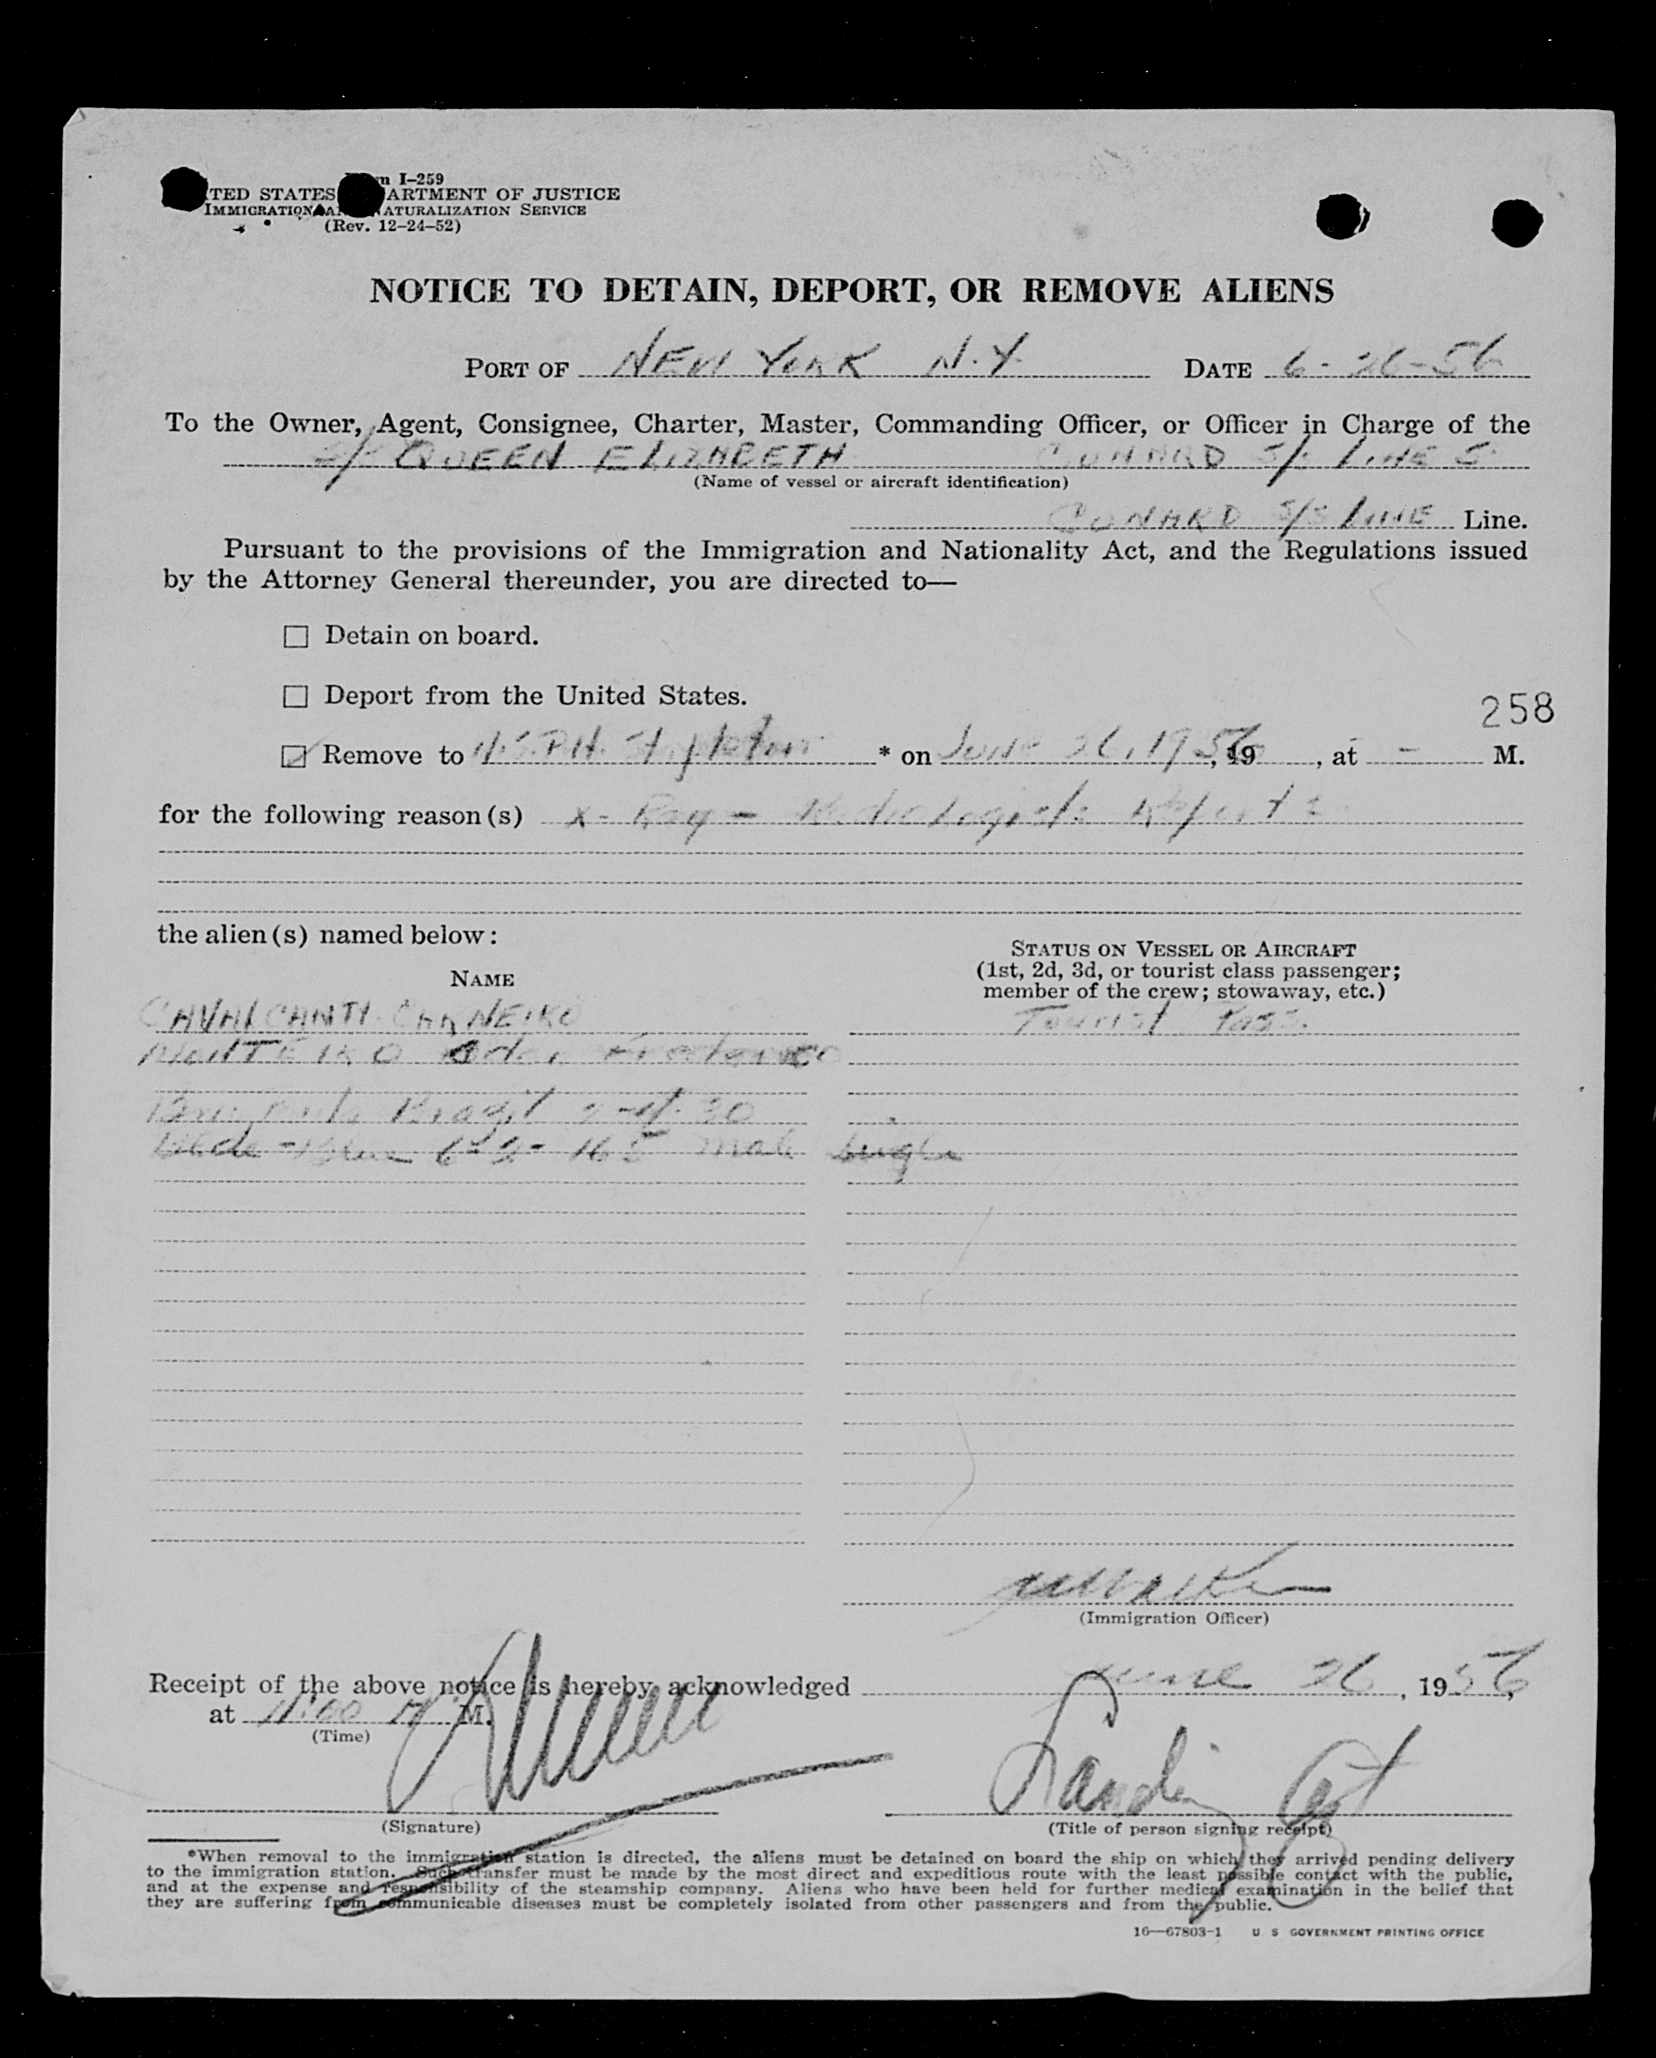 I-259
STATES DEPARTMENT OF JUSTICE
IMMIGRATION NATURALIZATION SERVICE
(Rev. 12-24-52)
NOTICE TO DETAIN, DEPORT, OR REMOVE ALIENS
PORT OF NEW YORK N.Y. DATE 6-26-56
To the Owner, Agent, Consignee, Charter, Master, Commanding Officer, or Officer in Charge of the
QUEEN ELIZABETH CUNARD
(Name of vessel or aircraft identification)
CUNARD S/S LINE Line.
Pursuant to the provisions of the Immigration and Nationality Act, and the Regulations issued
by the Attorney General thereunder, you are directed to—
Detain on board.
Deport from the United States.
258
Remove to * on June 26, 1956, 19 , at - M.
for the following reason(s) X-Ray - Radiologists
the alien(s) named below:
NAME
STATUS ON VESSEL OR AIRCRAFT
(1st, 2d, 3d, or tourist class passenger;
member of the crew; stowaway, etc.)
CAVALCANTI-CARNEIRO Tourist Pass.
MONTEIRO
Brazil
6-2-165 male single
(Immigration Officer)
Receipt of the above notice is hereby acknowledged June 26, 1956,
at M.
(Time)
Landing Agt
(Signature) (Title of person signing receipt)
*When removal to the immigration station is directed, the aliens must be detained on board the ship on which they arrived pending delivery
to the immigration station. Such transfer must be made by the most direct and expeditious route with the least possible contact with the public,
and at the expense and responsibility of the steamship company. Aliens who have been held for further medical examination in the belief that
they are suffering from communicable diseases must be completely isolated from other passengers and from the public.
16—67803-1 U S GOVERNMENT PRINTING OFFICE